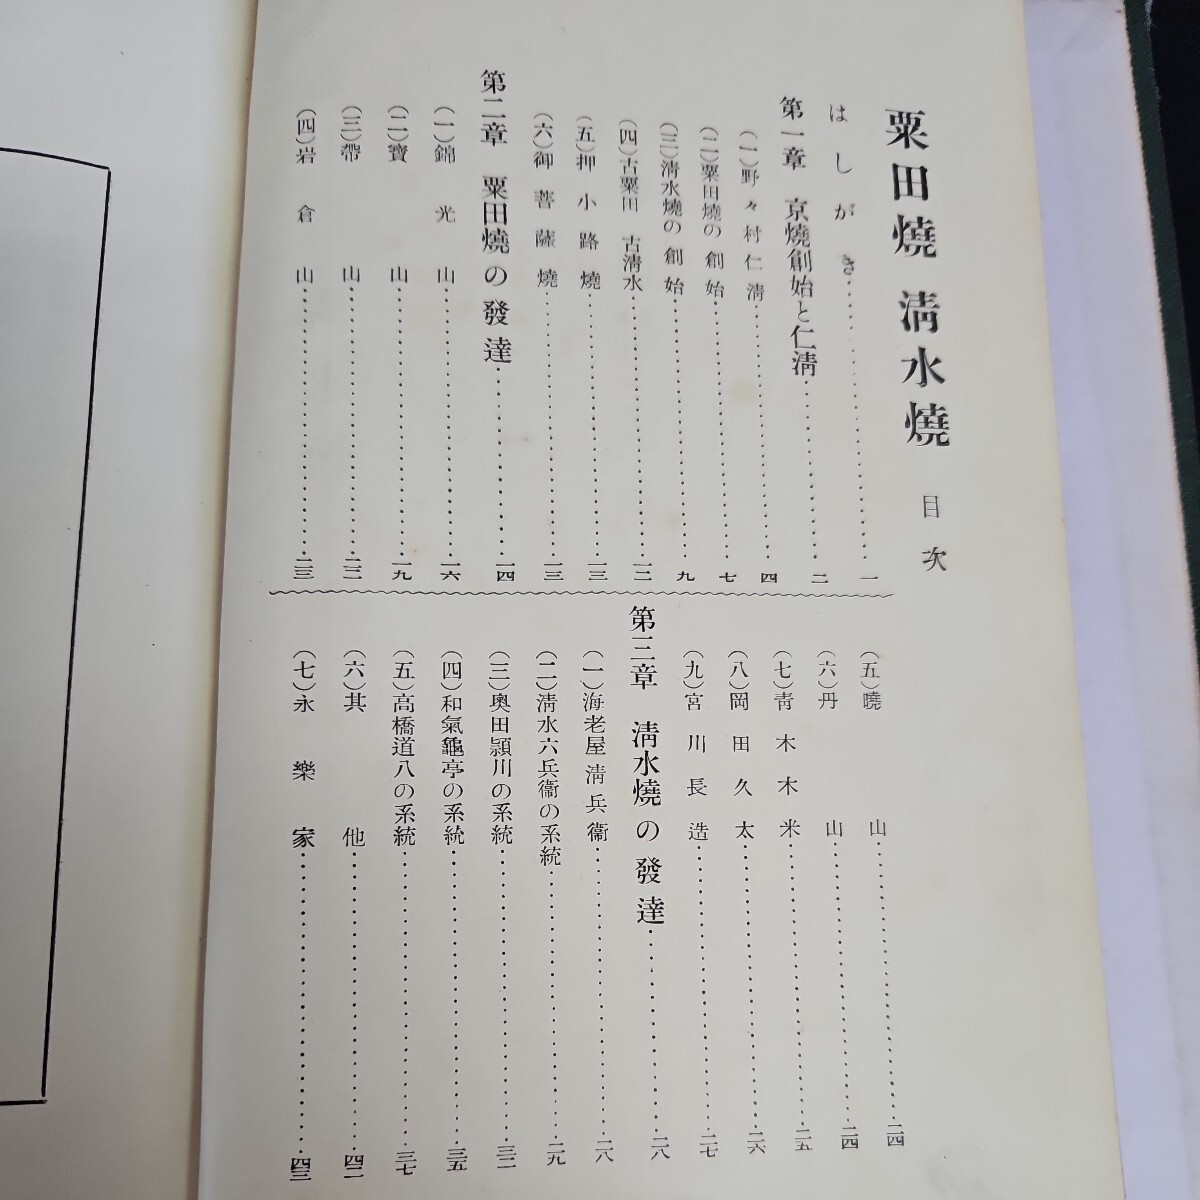 粟田燒 淸水燒 目次
はしがき……………一
第一章 京燒創始と仁淸……………二
(一)野々村仁淸……………四
(二)粟田燒の創始……………七
(三)淸水燒の創始……………九
(四)古粟田 古淸水……………一二
(五)押小路燒……………一三
(六)御菩薩燒……………一三
第二章 粟田燒の發達……………一四
(一)錦光山……………一六
(二)寶山……………一九
(三)帶山……………二二
(四)岩倉山……………二三
(五)曉山……………二四
(六)丹山……………二四
(七)靑木木米……………二五
(八)岡田久太……………二六
(九)宮川長造……………二七
第三章 淸水燒の發達……………二八
(一)海老屋淸兵衞……………二八
(二)淸水六兵衞の系統……………二九
(三)奧田頴川の系統……………三二
(四)和氣龜亭の系統……………三五
(五)高橋道八の系統……………三七
(六)其他……………四二
(七)永樂家……………四三